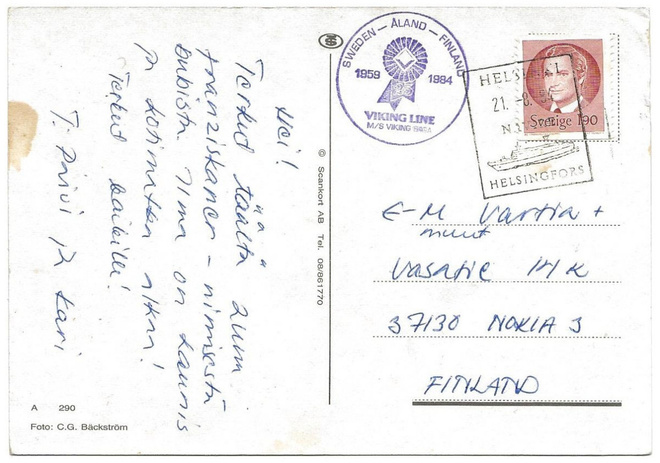 Hei!
Terkut täältä "Zum
Franziskaner - nimisestä
on kaunis
ja kotimatkan aika!
Terkut kaikille!
T: Päivi ja Kari
A 290
Foto: C.G. Bäckström
© Scankort AB Tel. 08/861770
SWEDEN – ÅLAND – FINLAND
1959 1984
25
VIKING LINE
M/S VIKING SAGA
HELSINKI
21. -8.
HELSINGFORS
Sverige 190
E-M Vartia +
muut
Vasatie 14 K
37130 NOKIA 3
FINLAND